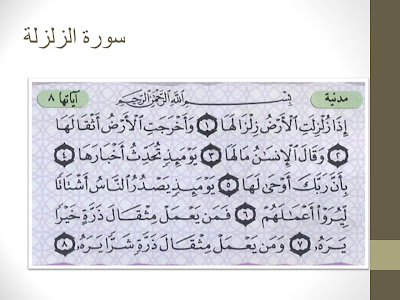 سورة الزلزلة
مدنية بِسْمِ اللَّهِ الرَّحْمَٰنِ الرَّحِيمِ آياتها ٨
إِذَا زُلْزِلَتِ ٱلْأَرْضُ زِلْزَالَهَا ١ وَأَخْرَجَتِ ٱلْأَرْضُ أَثْقَالَهَا
٢ وَقَالَ ٱلْإِنسَٰنُ مَالَهَا ٣ يَوْمَئِذٍ تُحَدِّثُ أَخْبَارَهَا ٤
بِأَنَّ رَبَّكَ أَوْحَىٰ لَهَا ٥ يَوْمَئِذٍ يَصْدُرُ ٱلنَّاسُ أَشْتَاتًا
لِّيُرَوْا۟ أَعْمَٰلَهُمْ ٦ فَمَن يَعْمَلْ مِثْقَالَ ذَرَّةٍ خَيْرًا
يَرَهُۥ ٧ وَمَن يَعْمَلْ مِثْقَالَ ذَرَّةٍ شَرًّا يَرَهُۥ ٨